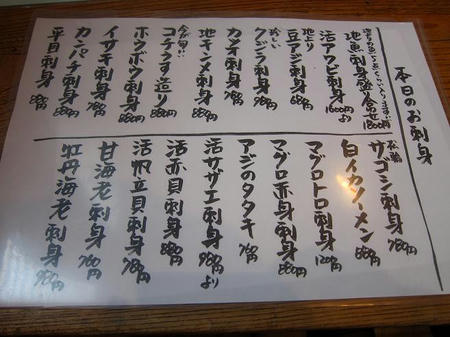 本日のお刺身
地魚刺身盛り合せ 1800円
活アワビ刺身 1600円より
地上り
豆アジ刺身 680円
珍しい
クジラ刺身 980円
カツオ刺身 780円
地キンメ刺身 880円
今が旬!!
コチウス造り 880円
ホウボウ刺身 880円
イサキ刺身 780円
カンパチ刺身 880円
平目刺身 880円
サゴシ刺身 780円
白イカソーメン 880円
マグロトロ刺身 1200円
マグロ赤身刺身 880円
アジのタタキ 760円
活サザエ刺身 980円より
活赤貝刺身 880円
活帆立貝刺身 780円
甘海老刺身 760円
牡丹海老刺身 980円